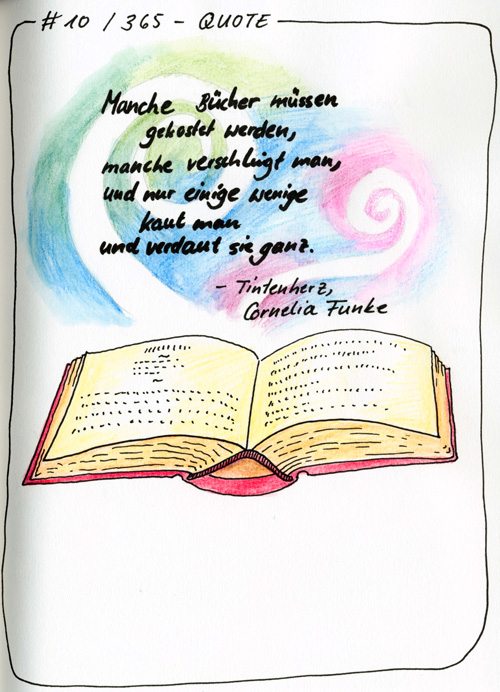 #10 / 365 - QUOTE
Manche Bücher müssen
gekostet werden,
manche verschlingt man,
und nur einige wenige
kaut man
und verdaut sie ganz.
- Tintenherz,
Cornelia Funke